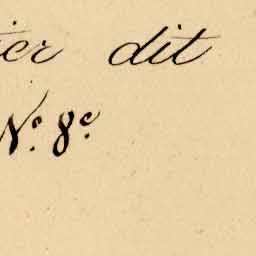 ier dit
Nº 8º